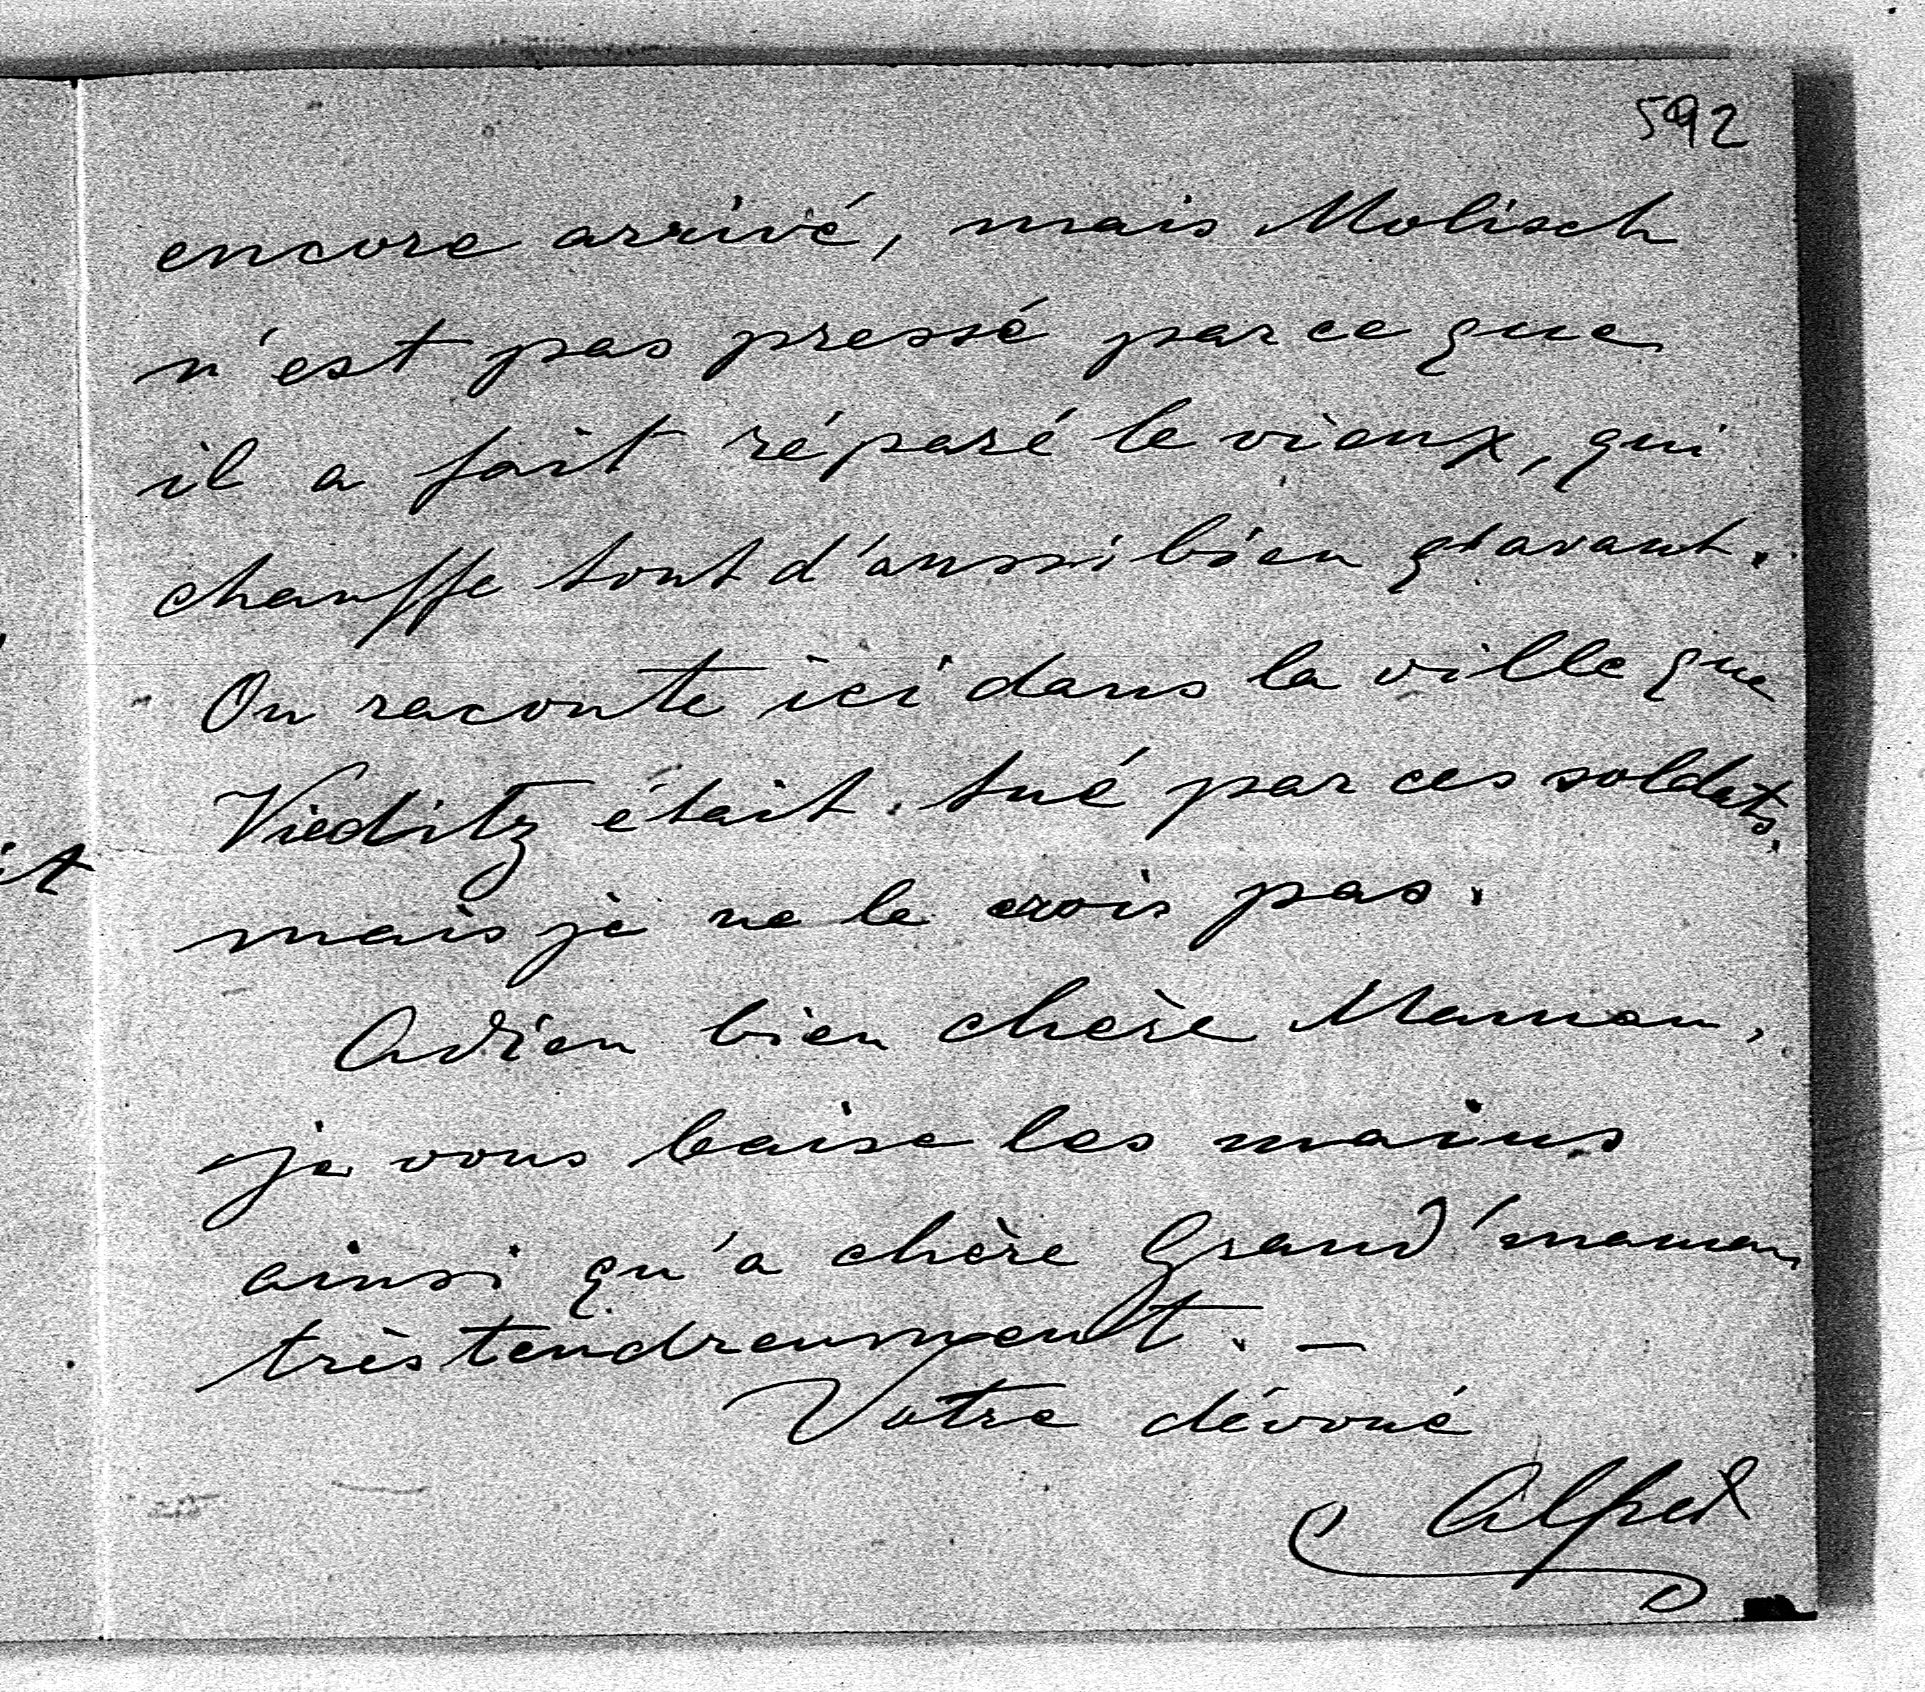 592
encore arrivé, mais Molisch
n'est pas pressé parce que
il a fait réparé le vieux, qui
chauffe tout d'aussi bien q'avant.
On raconte ici dans la ville que
Vieditz était tué par ces soldats,
mais je ne le crois pas.
Adieu bien chère Maman,
je vous baise les mains
ainsi qu'a chère Grand'maman
très tendreusment. —
Votre dévoué
Alfred